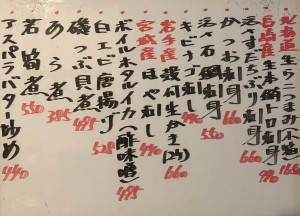 北海道産 生うにつまみ(小箱) 1680
長崎産 生本鮪トロ刺身 990
活〆すだちぶり刺身 660
かつお刺身
活〆石鯛刺身 550
キビナゴ刺し 440
岩手産 殻付生かき(2ヶ) 660
宮城産 ほや刺し 440
ボイルホタルイカ(酢味噌) 495
白エビ唐揚げ 528
磯つぶ貝煮 495
あら煮 385
若筍煮 550
アスパラバター炒め 440